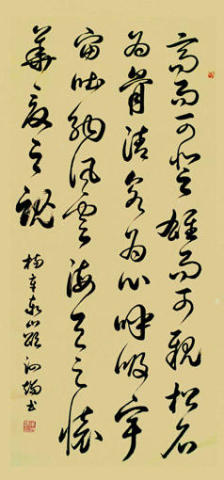 高而可登雄而可親松石
為骨清泉為心呼吸宇
宙吐納風雲海天之懷
華夏之魂
楊辛泰山頌 書